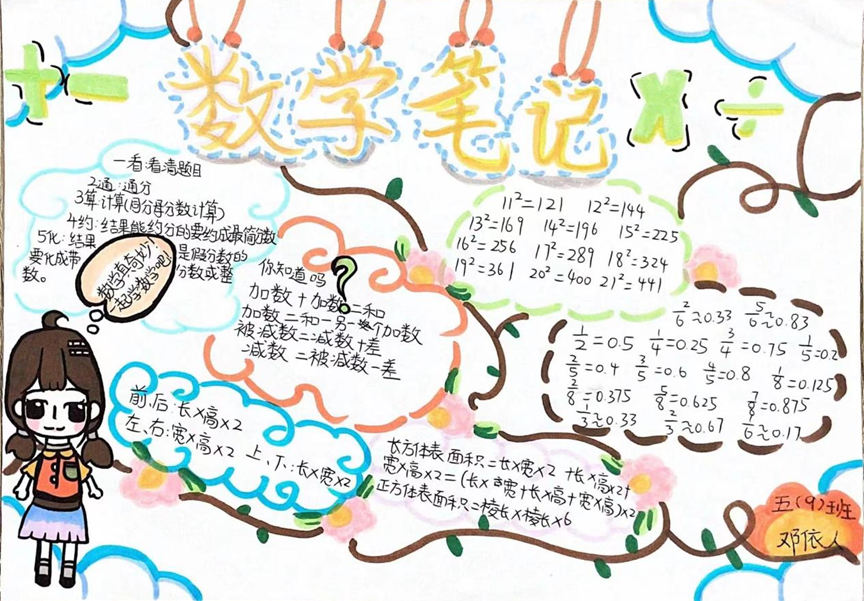 数学笔记
一看:看清题目
2通:通分
3算:计算(同分母分数计算)
4约:结果能约分的要约成最简分数
5化:结果是假分数的
要化成带分数或整
数。
数学真奇妙!
一起学数学吧!
你知道吗?
加数+加数=和
加数=和-另一个加数
被减数=减数+差
减数=被减数-差
11²=121 12²=144
13²=169 14²=196 15²=225
16²=256 17²=289 18²=324
19²=361 20²=400 21²=441
2/6≈0.33 5/6≈0.83
1/2=0.5 1/4=0.25 3/4=0.75 1/5=0.2
2/5=0.4 3/5=0.6 4/5=0.8 1/8=0.125
3/8=0.375 5/8=0.625 7/8=0.875
1/3≈0.33 2/3≈0.67 1/6≈0.17
前、后:长×高×2
左、右:宽×高×2 上、下:长×宽×2
长方体表面积=长×宽×2+长×高×2+
宽×高×2=(长×宽+长×高+宽×高)×2
正方体表面积=棱长×棱长×6
五(9)班
邓依人